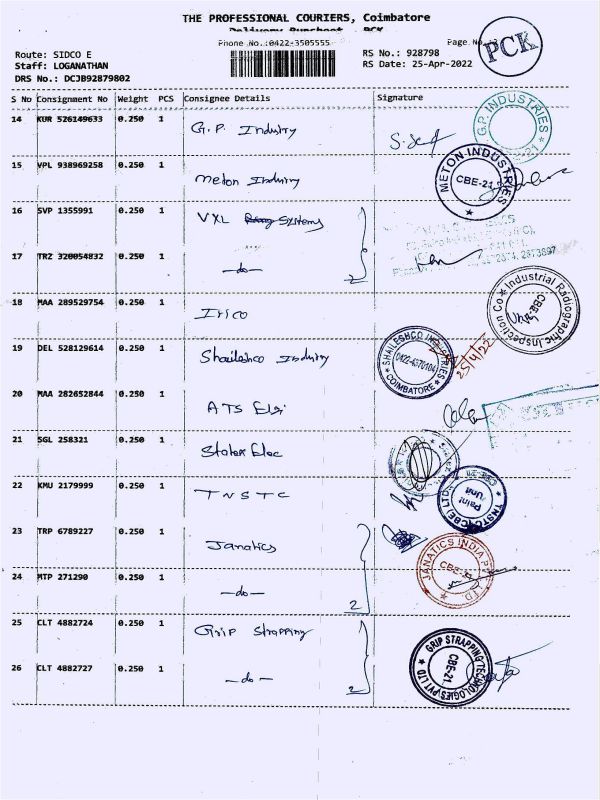 THE PROFESSIONAL COURIERS, Coimbatore
Delivery Runsheet - PCK
Phone No.:0422-3505555
Page No.
PCK
Route: SIDCO E
Staff: LOGANATHAN
DRS No.: DCJB92879802
RS No.: 928798
RS Date: 25-Apr-2022
S No Consignment No Weight PCS Consignee Details Signature
14 KUR 526149633 0.250 1 G.P. Industry
G.P. INDUSTRIES
15 VPL 938969258 0.250 1 Meton Industry
METON INDUSTRIES CBE-21
16 SVP 1355991 0.250 1 VXL Systems
17 TRZ 320054832 0.250 1 -do- 2
18 MAA 289529754 0.250 1 Irico
Industrial Radiographic Inspection Co CBE
19 DEL 528129614 0.250 1 Shaileshco Industry
SHAILESHCO INDUSTRIES 0422-4370104 COIMBATORE
25/4/22
20 MAA 282652844 0.250 1 ATS Elgi
21 SGL 258321 0.250 1 Stalex Elec
22 KMU 2179999 0.250 1 TNSTC
TNSTC (CBE) LTD Paint Unit
23 TRP 6789227 0.250 1 Janatics
JANATICS INDIA P LTD. CBE-21
24 MTP 271290 0.250 1 -do- 2
25 CLT 4882724 0.250 1 Grip Strapping
GRIP STRAPPING TECHNOLOGIES PVT LTD CBE-21.
26 CLT 4882727 0.250 1 -do- 2